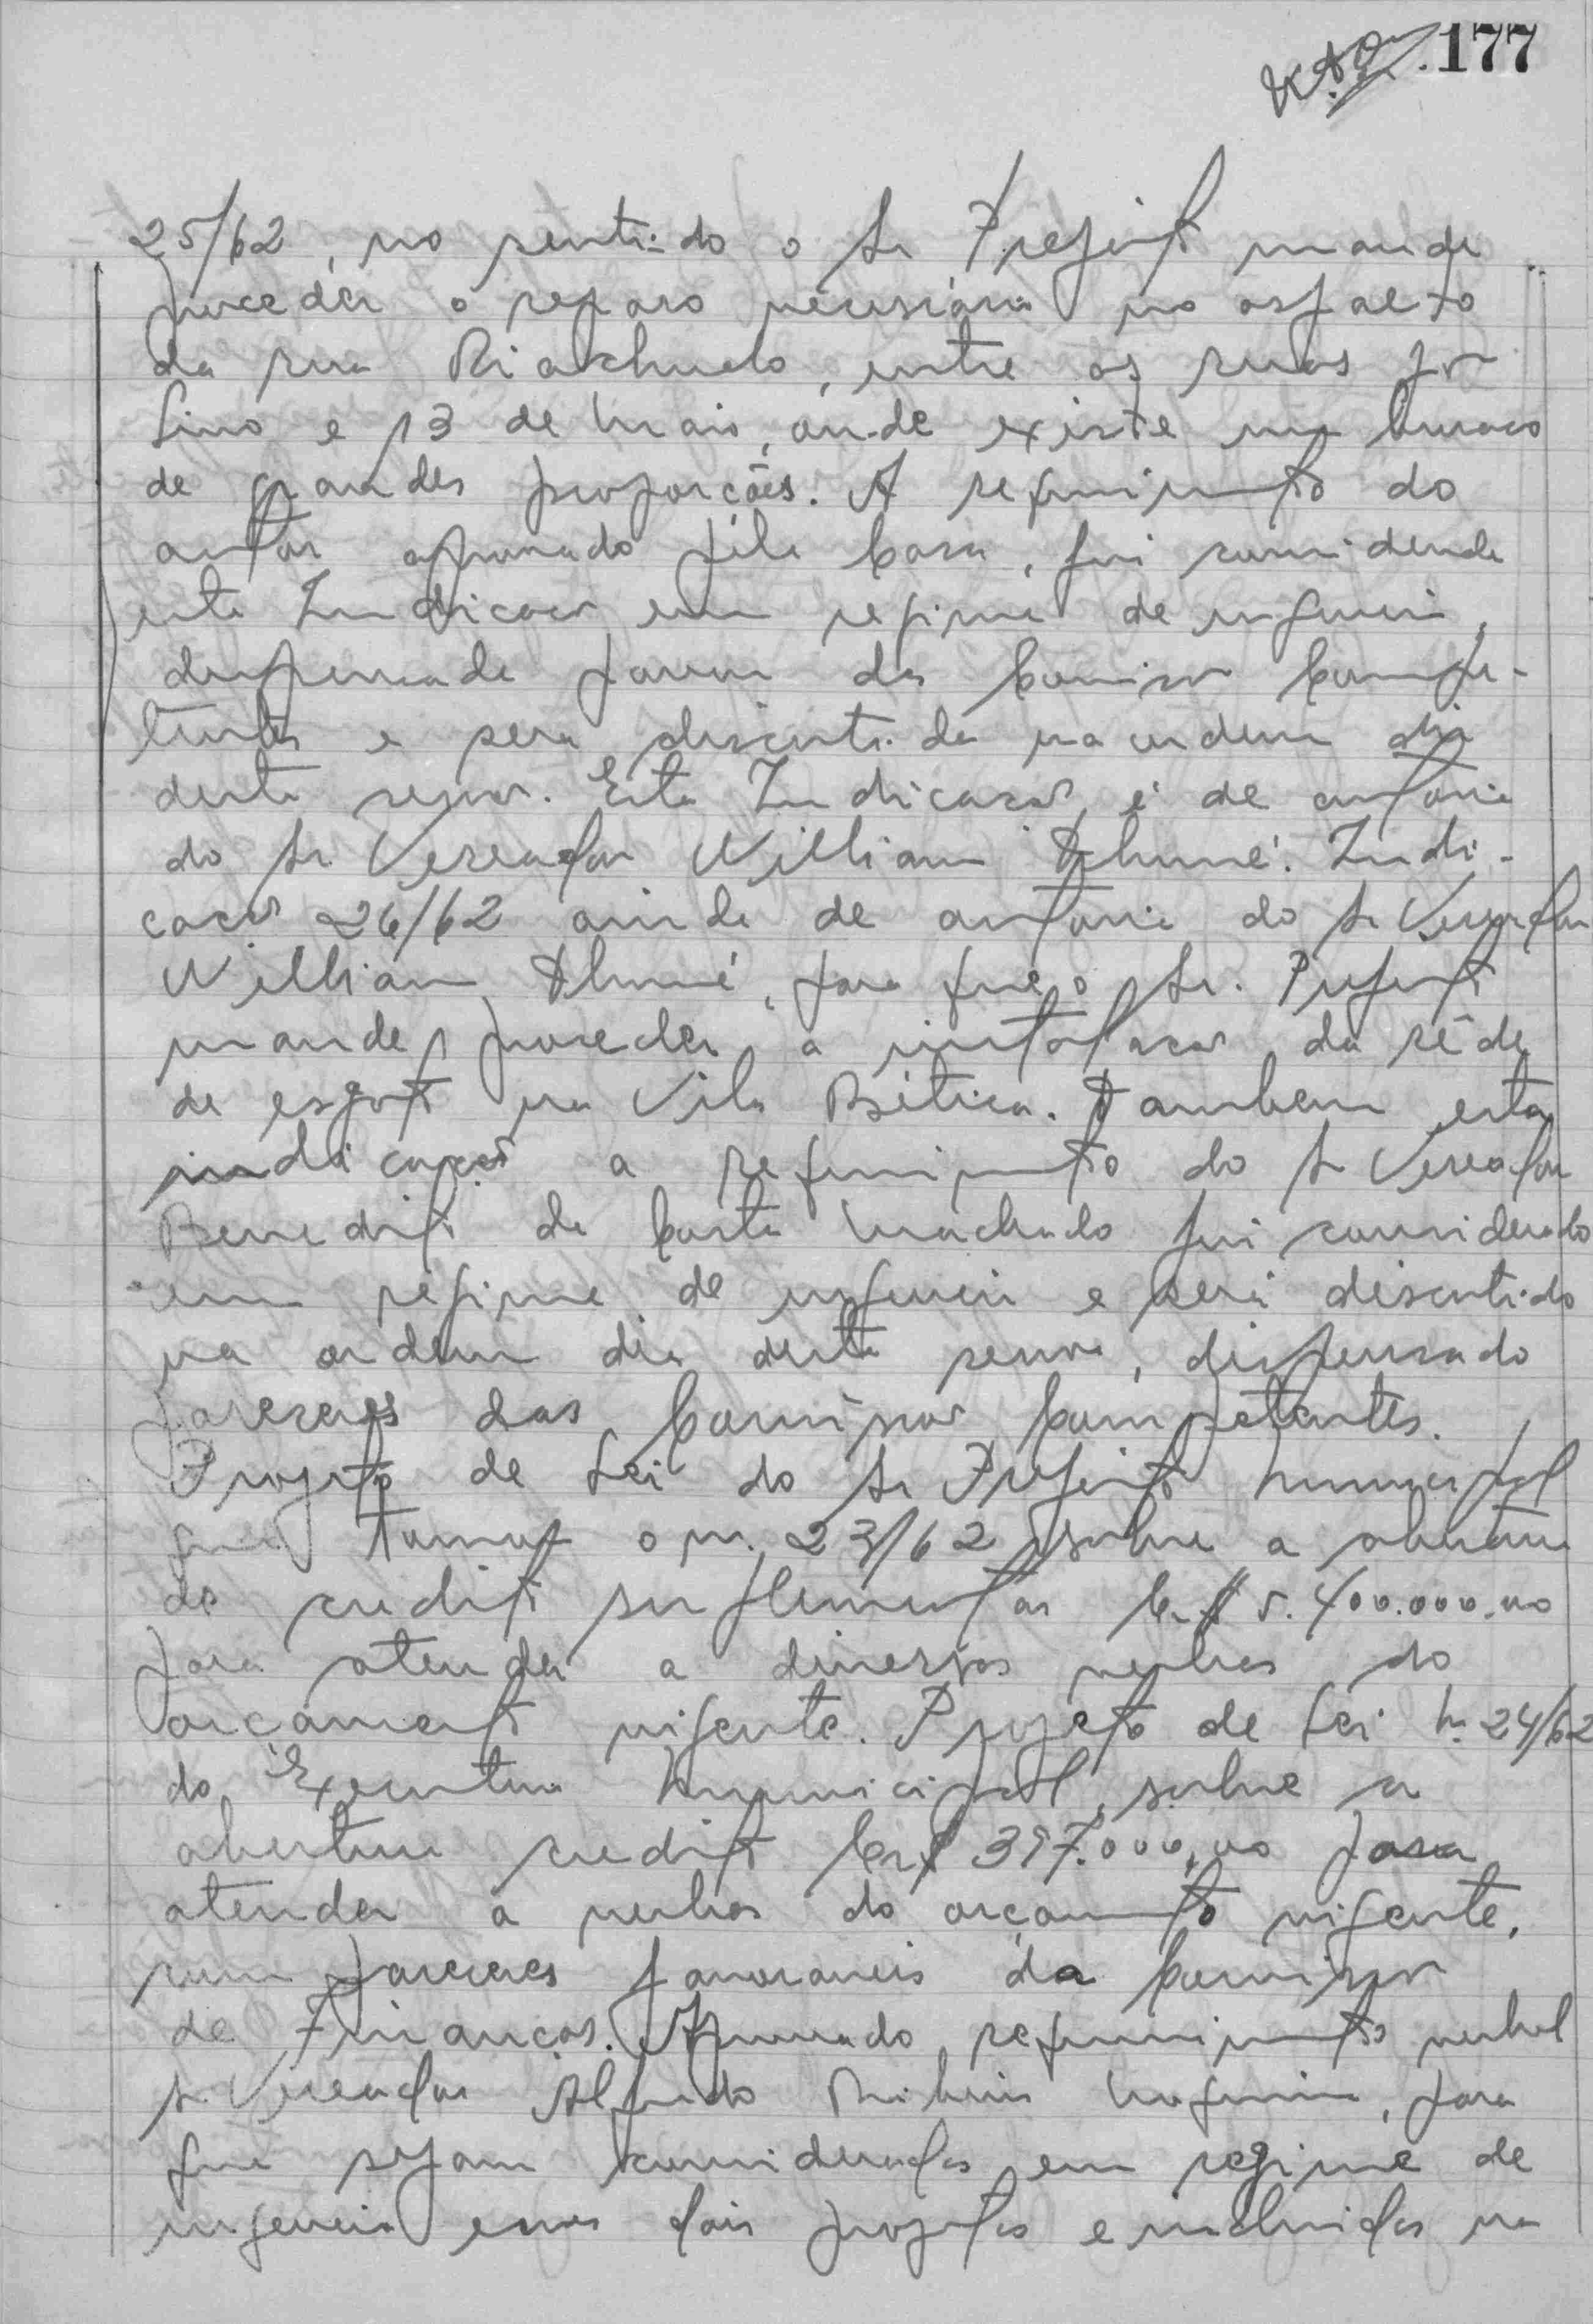 177
25/62, no sentido o Sr Prefeito mande
proceder o reparo necessário no asfalto
da rua Riachuelo, entre as ruas
Lino e 13 de Maio, onde existe um buraco
de grandes proporções. A requerimento do
autor aprovado pela Casa, foi considerada
esta Indicação em regime de urgencia,
dispensada parecer das Comissão Compe-
tentes e sera discutida na ordem dia
desta sessão. Esta Indicação é de autoria
do Sr Vereador William Dhumé. Indi-
cação 26/62 ainda de autoria do Sr Vereador
William Dhumé, para que o Sr. Prefeito
mande proceder a instalação da rêde
de esgoto na Vila Bética. Tambem esta
indicação a requerimento do Sr Vereador
Benedito da Costa Machado foi considerado
em regime de urgencia e será discutido
na ordem dia desta sessão, dispensado
pareceres das Comissões Competentes.
Projeto de Lei do Sr Prefeito Municipal
que tomou o n. 23/62 sobre a abertura
de credito suplementar Cr$ 5.400.000.00
para atender a diversas verbas do
orçamento vigente. Projeto de Lei n. 24/62
do Executivo Municipal, sobre a
abertura credito Cr$ 397.000,00 para
atender a verbas do orçamento vigente,
com pareceres favoraveis da Comissão
de Finanças. Aprovado requerimento verbal
Sr Vereador Alfredo Ribeiro Nogueira, para
que sejam considerados em regime de
urgencia esses dois projetos e incluidos na